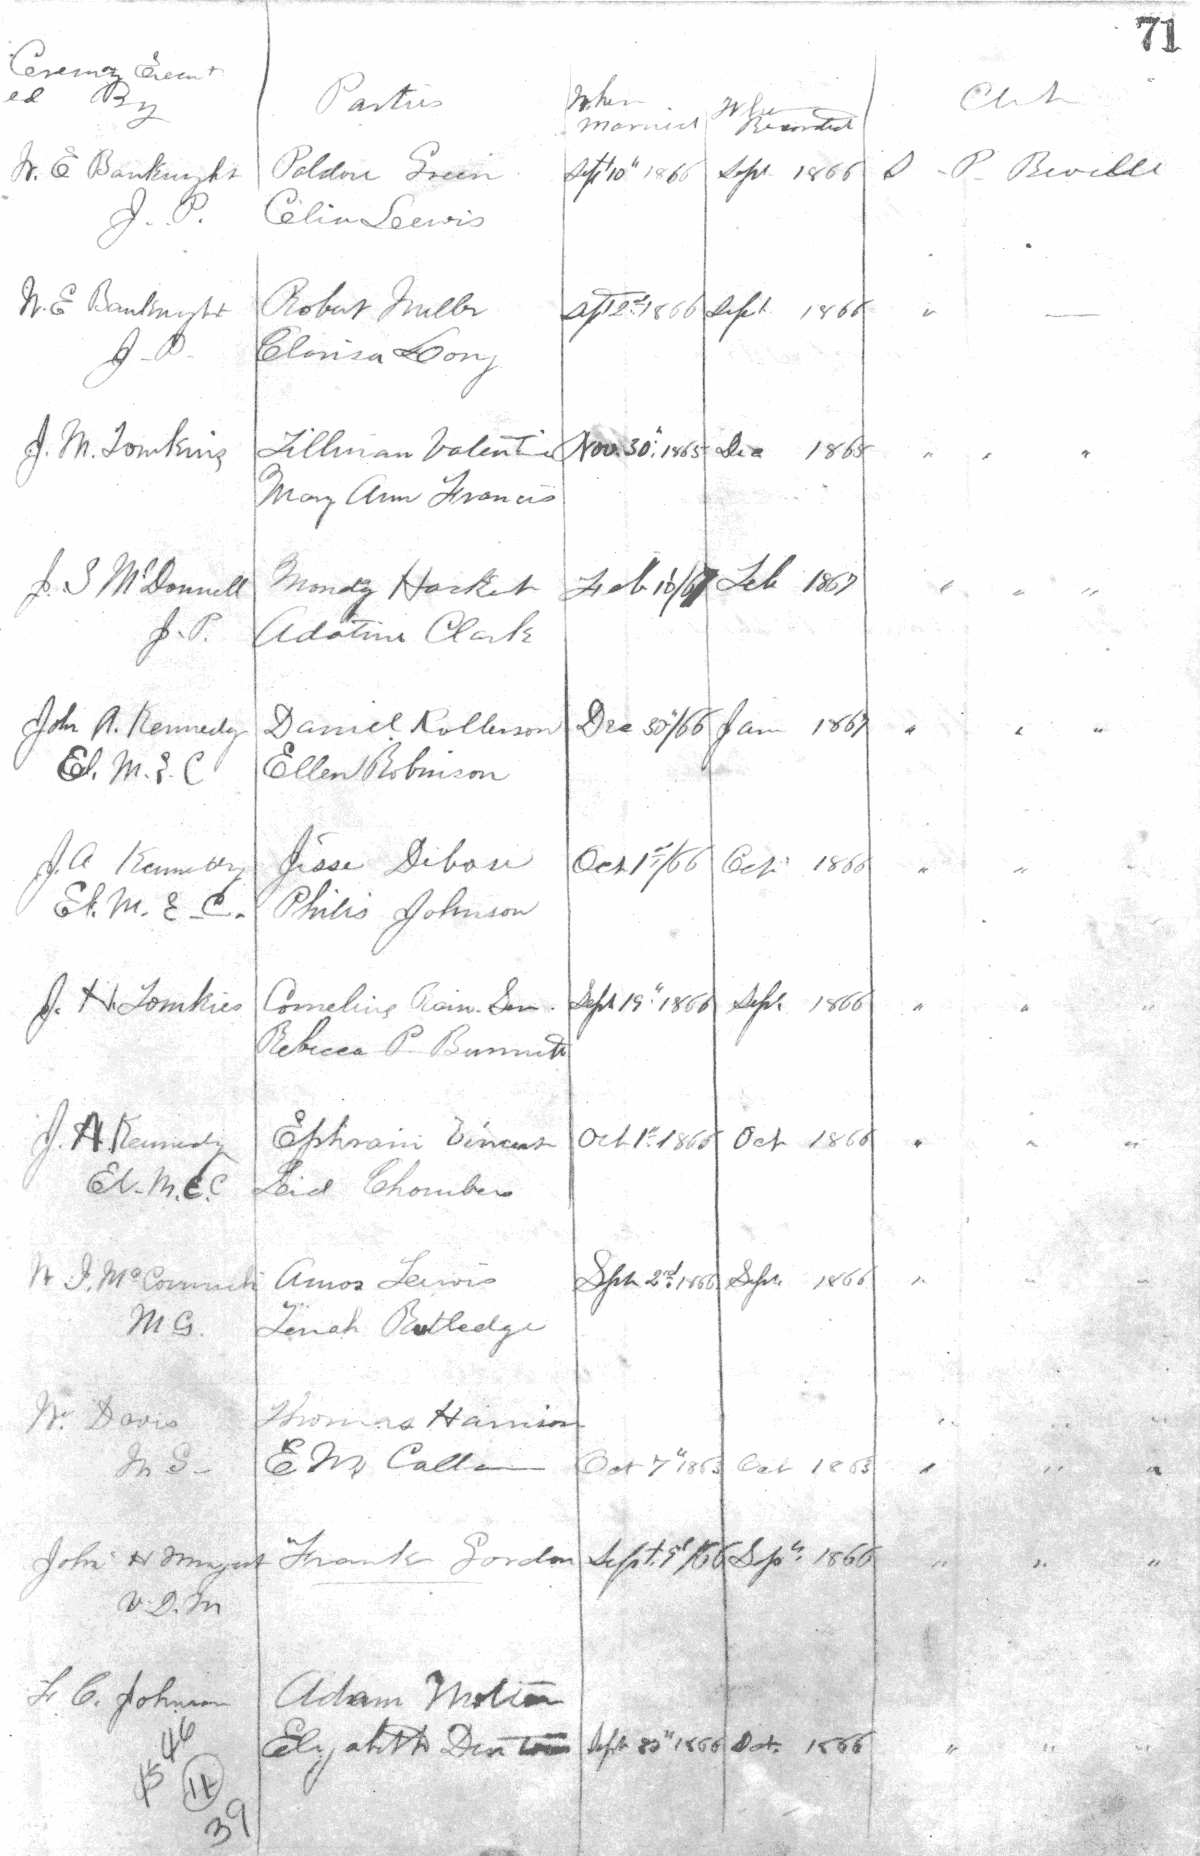 71
Ceremony Execut
ed By Parties When Married When Recorded Clerk
W. E Bauknight Poldore Green Sept 10" 1866 Sept 1866 S. P. Beville
J. P. Celia Lewis
W. E Bauknight Robert Miller Sept 2nd 1866 Sept 1866 "
J. P. Clarisa Long
J. M. Tomkins Tillman Valentin Nov. 30" 1865 Dec 1865 " " "
Mary Ann Francis
J. S McDonnell Mondy Hasket Feb 10/67 Feb 1867 " " "
J. P. Adaline Clark
John A. Kennedy Daniel Rollerson Dec 30"/66 Jan 1867 " " "
El. M. E. C Ellen Robinson
J. A Kennedy Jesse Debose Oct 1st/66 Oct 1866 " "
El. M. E C. Philis Johnson
J. H. Tomkies Cornelius Rain Sen. Sept 19" 1866 Sept 1866 " " "
Rebecca P. Burnett
J. A. Kennedy Ephraim Vincent Oct 1st 1866 Oct 1866 " " "
El. M. E. C Chambers
W J. McCormick Amos Lewis Sept 2nd 1866 Sept. 1866 "
M G. Tenah Rutledge
W. Davis Thomas Harrison " " "
M G E Mc Calla Oct 7" 1863 Oct 1863 " " "
John H Frank Gordon Sept. 9"/66 Sept. 1866 " " "
V. D. M
F. C. Johnson Adam Molton
Elyabeth Denton Sept 30" 1866 Oct. 1866 " " "
46
15
14
39